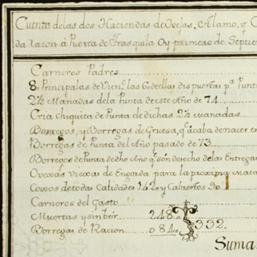 Cuenta de las dos Haciendas de Ovejas, Alamo, y C
da razon à Puerta de Trasquila Oy primero de Septie
Carneros Padres
8 Principales de Vien.s las 6 de ellas dispuertas p.a Punt
2½ Manadas de la Punta de este Año de 74
Cria Chiquita de Punta de dichas 2½ manadas
Borregos, y Borregas de Gruesa, q.e acaba de nacer en
Borregas de Punta del Año pasado de 73
Borregos de Punta de dho Año q.e son derecho de las Entregas
Ovejas Viejas de Engorda para la proxima mata
Cojos de todas Calidades 142 y Cabestros 20
Carneros del Gasto
Muertas y sin bir 248
Borregas de Racion 084 332.
Suma